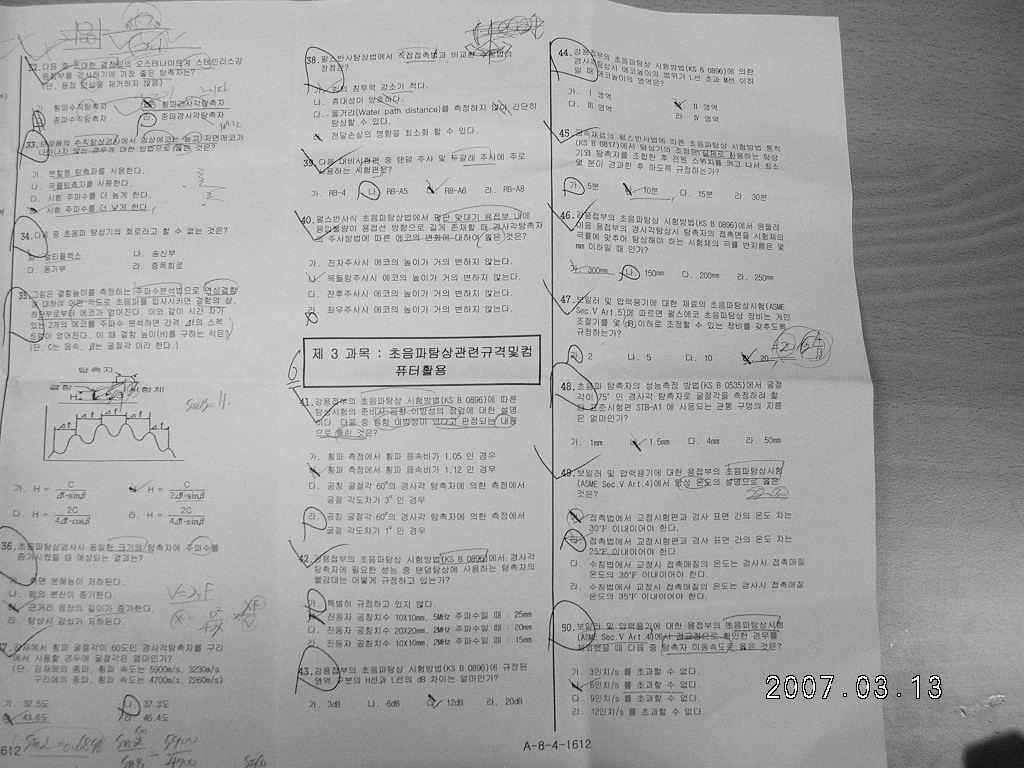 32. 다음 중 조대한 결정립의 오스테나이트계 스테인리스강
용접부를 검사하기에 가장 좋은 탐촉자는?
(단, 용접 덧살을 제거하지 않음)
가. 횡파수직탐촉자 나. 횡파경사각탐촉자
종파수직탐촉자 라. 종파경사각탐촉자
33. 수직탐상검사에서 임상에코는 높고 저면에코가
나타나지 않는 경우에 대한 방법으로 옳은 것은?
가. 분할형 탐촉자를 사용한다.
나. 곡률탐촉자를 사용한다.
다. 시험 주파수를 더 높게 한다.
라. 시험 주파수를 더 낮게 한다.
34. 다음 중 초음파 탐상기의 회로라고 할 수 없는 것은?
가. 멀티플렉스 나. 송신부
다. 동기부 라. 증폭회로
35. 그림은 결함높이를 측정하는 주파수분석법으로 면상결함
에 대하여 어떤 각도로 초음파를 입사시키면 결함의 상,
하단부로부터 에코가 얻어진다. 이와 같이 시간 차가
있는 2개의 에코를 주파수 분석하면 간격 Δf의 스펙
트럼이 얻어진다. 이 때 결함 높이(H)를 구하는 식은?
(단, C는 음속, β는 굴절각 이라 한다.)
탐촉자
결함 H 시험체
Δf Δf Δf
sinβ = H
가. H = C / Δf·sinβ 나. H = C / 2Δf·sinβ
다. H = 2C / 4Δf·cosβ 라. H = 2C / 4Δf·sinβ
36. 초음파탐상검사시 동일한 크기의 탐촉자에 주파수를
증가시켰을 때 예상되는 결과는?
가. 측면 분해능이 저하된다.
나. 빔의 분산이 증가한다.
다. 근거리 음장의 길이가 증가한다.
라. 탐상시 감쇠가 저하된다.
37. 강재에서 횡파 굴절각이 60도인 경사각탐촉자를 구리
에서 사용할 경우에 굴절각은 얼마인가?
(단, 강재에의 종파, 횡파 속도는 5900m/s, 3230m/s
구리에의 종파, 횡파 속도는 4700m/s, 2260m/s)
가. 32.5도 나. 37.3도
다. 43.6도 라. 46.4도
1612
38. 펄스반사탐상법에서 직접접촉법과 비교한 수침법의
장점은?
가. 빔의 침투력 감소가 적다.
나. 휴대성이 양호하다.
다. 물거리(Water path distance)를 측정하지 않아 간단히
탐상할 수 있다.
라. 전달손실의 영향을 최소화 할 수 있다.
39. 다음 대비시험편 중 탠덤 주사 및 두갈래 주사에 주로
사용하는 시험편은?
가. RB-4 나. RB-A5 다. RB-A6 라. RB-A8
40. 펄스반사식 초음파탐상법에서 평판 맞대기 용접부 내에
용입불량이 용접선 방향으로 길게 존재할 때 경사각탐촉자
의 주사방법에 따른 에코의 변화에 대하여 옳은 것은?
가. 진자주사시 에코의 높이가 거의 변하지 않는다.
나. 목돌림주사시 에코의 높이가 거의 변하지 않는다.
다. 전후주사시 에코의 높이가 거의 변하지 않는다.
라. 좌우주사시 에코의 높이가 거의 변하지 않는다.
제 3 과목 : 초음파탐상관련규격및컴
퓨터활용
41. 강용접부의 초음파탐상 시험방법(KS B 0896)에 따른
탐상시험의 준비시 음향 이방성의 점검에 대한 설명
이다. 다음 중 음향 이방성이 있다고 판정되는 내용
으로 틀린 것은?
가. 횡파 측정에서 횡파 음속비가 1.05 인 경우
나. 횡파 측정에서 횡파 음속비가 1.12 인 경우
다. 공칭 굴절각 60°의 경사각 탐촉자에 의한 측정에서
굴절 각도차가 3° 인 경우
라. 공칭 굴절각 60°의 경사각 탐촉자에 의한 측정에서
굴절 각도차가 1° 인 경우
42. 강용접부의 초음파탐상 시험방법(KS B 0896)에서 경사각
탐촉자에 필요한 성능 중 탠덤탐상에 사용하는 탐촉자의
불감대는 어떻게 규정하고 있는가?
가. 특별히 규정하고 있지 않다.
나. 진동자 공칭치수 10X10mm, 5MHz 주파수일 때 : 25mm
다. 진동자 공칭치수 20X20mm, 2MHz 주파수일 때 : 20mm
라. 진동자 공칭치수 10X10mm, 2MHz 주파수일 때 : 15mm
43. 강용접부의 초음파탐상 시험방법(KS B 0896)에 규정된
영역 구분의 H선과 L선의 dB 차이는 얼마인가?
가. 3dB 나. 6dB 다. 12dB 라. 20dB
A-8-4-1612
44. 강용접부의 초음파탐상 시험방법(KS B 0896)에 의한
경사각탐상시 에코높이의 범위가 L선 초과 M선 이하
일 때 에코높이의 영역은?
가. Ⅰ 영역 나. Ⅱ 영역
다. Ⅲ 영역 라. Ⅳ 영역
45. 금속재료의 펄스반사법에 따른 초음파탐상 시험방법 통칙
(KS B 0817)에서 탐상기의 조정은 실제로 사용하는 탐상
기와 탐촉자를 조합한 후 전원 스위치를 켜고 나서 최소
몇 분이 경과한 후 하도록 규정하는가?
가. 5분 나. 10분 다. 15분 라. 30분
46. 강용접부의 초음파탐상 시험방법(KS B 0896)에서 원둘레
이음 용접부의 경사각탐상시 탐촉자의 접촉면을 시험체의
곡률에 맞추어 탐상해야 하는 시험체의 곡률 반지름은 몇
mm 이하일 때 인가?
가. 300mm 나. 150mm 다. 200mm 라. 250mm
47. 보일러 및 압력용기에 대한 재료의 초음파탐상시험(ASME
Sec.V Art.5)에 따르면 펄스에코 초음파탐상 장비는 게인
조절기를 몇 dB 이하로 조정할 수 있는 장비를 갖추도록
규정하는가?
가. 2 나. 5 다. 10 라. 20
48. 초음파 탐촉자의 성능측정 방법(KS B 0535)에서 굴절
각이 75° 인 경사각 탐촉자로 굴절각을 측정하려 할
때 표준시험편 STB-A1 에 사용되는 관통 구멍의 지름
은 얼마인가?
가. 1mm 나. 1.5mm 다. 4mm 라. 50mm
49. 보일러 및 압력용기에 대한 용접부의 초음파탐상시험
(ASME Sec.V Art.4)에서 탐상 온도의 설명으로 옳은
것은?
가. 접촉법에서 교정시험편과 검사 표면 간의 온도 차는
30°F 이내이어야 한다.
나. 접촉법에서 교정시험편과 검사 표면 간의 온도 차는
25°F 이내이어야 한다.
다. 수침법에서 교정시 접촉매질의 온도는 검사시 접촉매질
온도의 30°F 이내이어야 한다.
라. 수침법에서 교정시 접촉매질의 온도는 검사시 접촉매질
온도의 35°F 이내이어야 한다.
50. 보일러 및 압력용기에 대한 용접부의 초음파탐상시험
(ASME Sec.V Art.4)에서 검교정으로 확인한 경우를
제외했을 때 다음 중 탐촉자 이동속도로 옳은 것은?
가. 3인치/s 를 초과할 수 없다.
나. 6인치/s 를 초과할 수 없다.
다. 9인치/s 를 초과할 수 없다.
라. 12인치/s 를 초과할 수 없다.
2007.03.13